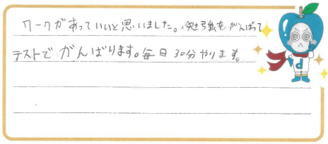 ワークがあっていいと思いました。勉強をがんばって
テストでがんばります。毎日30分やります。